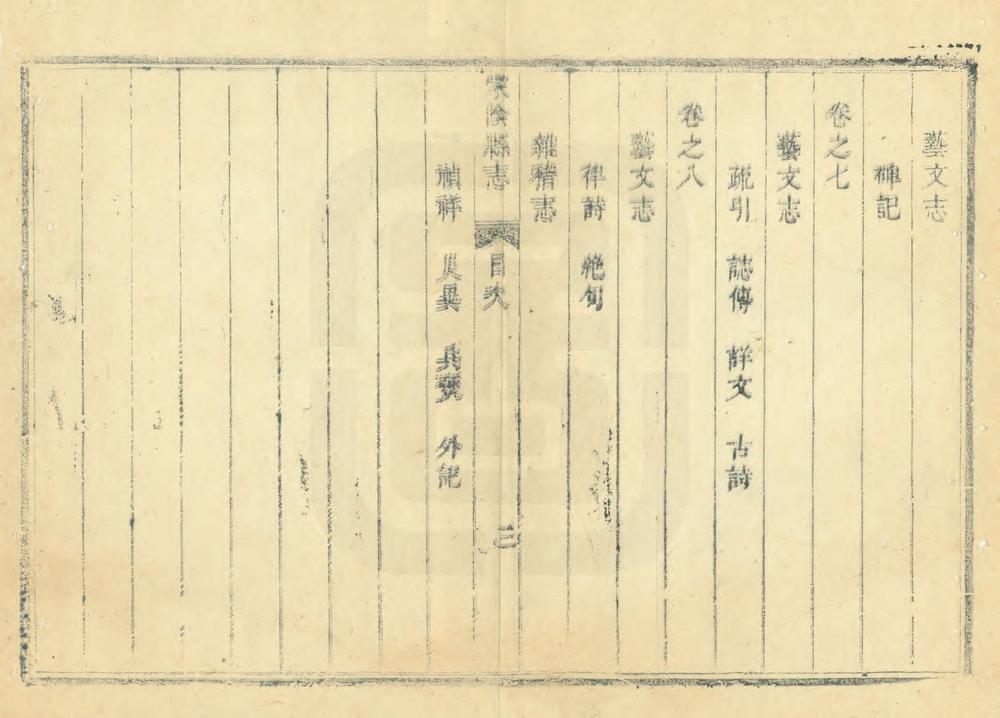 藝文志
碑記
卷之七
藝文志
疏引 誌傳 詳文 古詩
卷之八
藝文志
律詩 絶句
雜稽志
蒙陰縣志 目次 三
禎祥 災異 兵燹 外記